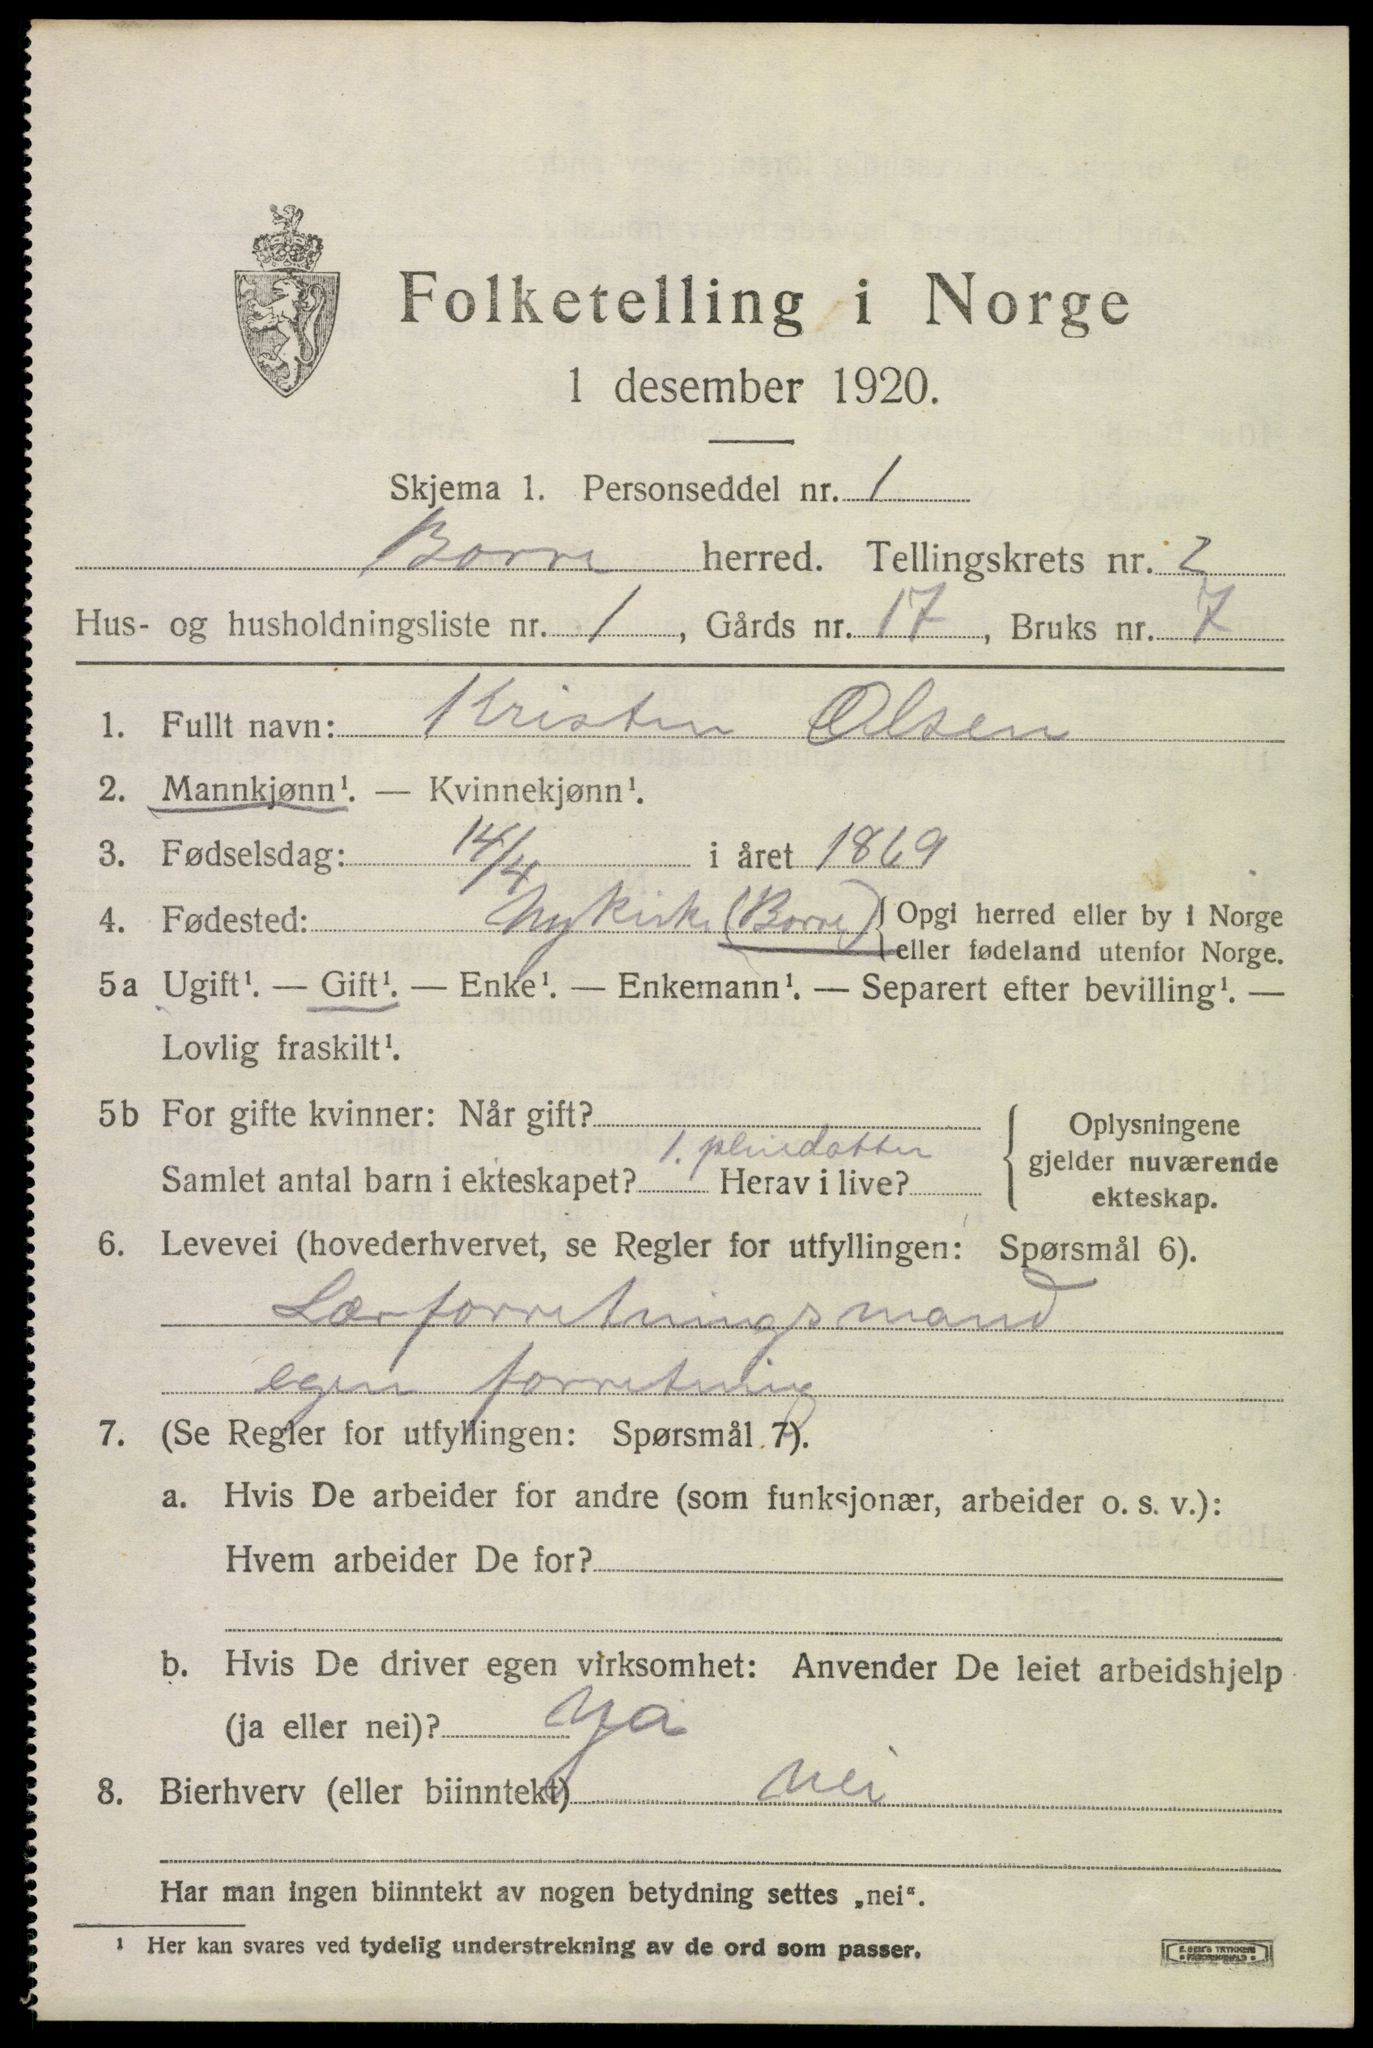 Folketelling i Norge
1 desember 1920.
Skjema 1. Personseddel nr. 1
Borre herred. Tellingskrets nr. 2
Hus- og husholdningsliste nr. 1, Gårds nr. 17, Bruks nr. 7
1. Fullt navn: Kristen Olsen
2. Mannkjønn¹. — Kvinnekjønn¹.
3. Fødselsdag: 14/4 i året 1869
4. Fødested: Nykirke (Borre) { Opgi herred eller by i Norge
eller fødeland utenfor Norge.
5a Ugift¹. — Gift¹. — Enke¹. — Enkemann¹. — Separert efter bevilling¹. —
Lovlig fraskilt¹.
5b For gifte kvinner: Når gift?
1. pleiedatter
Samlet antal barn i ekteskapet? Herav i live?
} Oplysningene
gjelder nuværende
ekteskap.
6. Levevei (hovederhvervet, se Regler for utfyllingen: Spørsmål 6).
Lærforretningsmand
egen forretning
7. (Se Regler for utfyllingen: Spørsmål 7).
a. Hvis De arbeider for andre (som funksjonær, arbeider o. s. v.):
Hvem arbeider De for?
b. Hvis De driver egen virksomhet: Anvender De leiet arbeidshjelp
(ja eller nei)? Ja
8. Bierhverv (eller biinntekt) nei
Har man ingen biinntekt av nogen betydning settes „nei“.
¹ Her kan svares ved tydelig understrekning av de ord som passer.